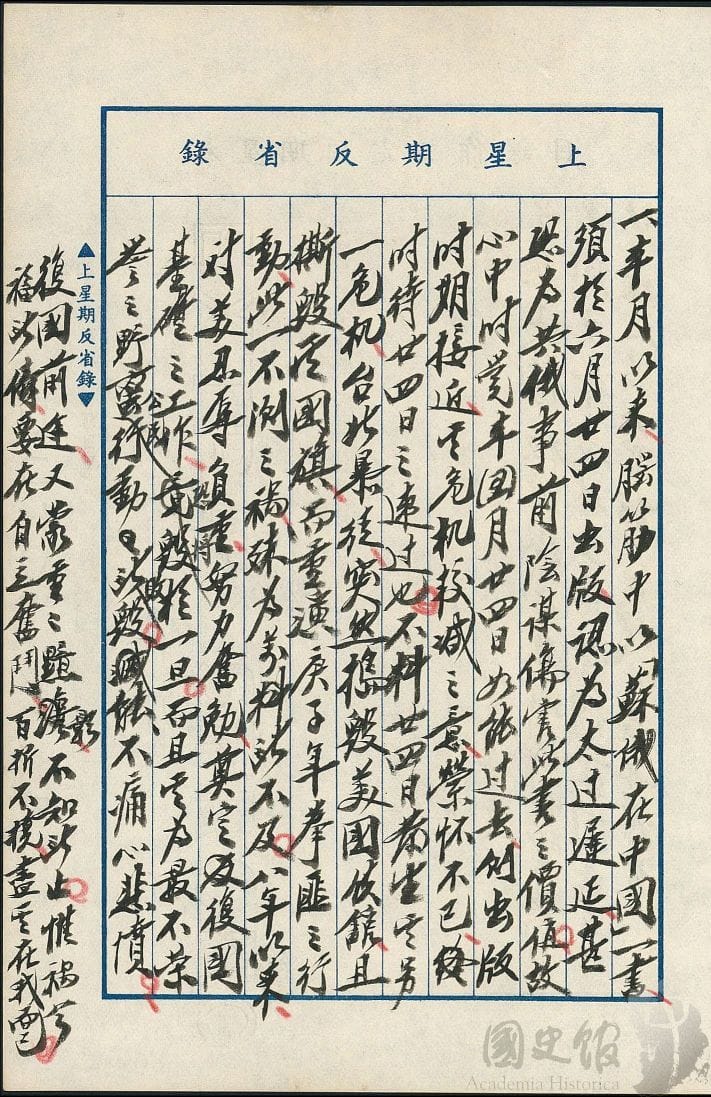 上星期反省錄
一、半月以來、腦筋中以「蘇俄在中國」一書
須於六月廿四日出版、認為太過遲延、甚
恐為共俄事前陰謀傷害此書之價值、故
心中時覺本五月廿四日如能過去、則出版
時期接近、其危机較減之意、縈懷不已、終
時待廿四日之速過也。不料廿四日發生其另
一危机、台北暴徒突然搗毀美國使館、且
撕毀其國旗、而重演庚子年拳匪之行
動、此一不測之禍、殊為萬料所不及。八年以來、
對美忍辱負重、努力奮勉、奠定反復國
基礎之工作、竟毀於一旦。而且其為最不榮
譽之野蠻行動所毀滅、能不痛心悲憤。
▲上星期反省錄▼
復國前途、又蒙重重黯影、不知所止。惟禍兮
福所倚、要在自立奮鬥、百折不撓、盡其在我而已。
國史館
Academia Historica